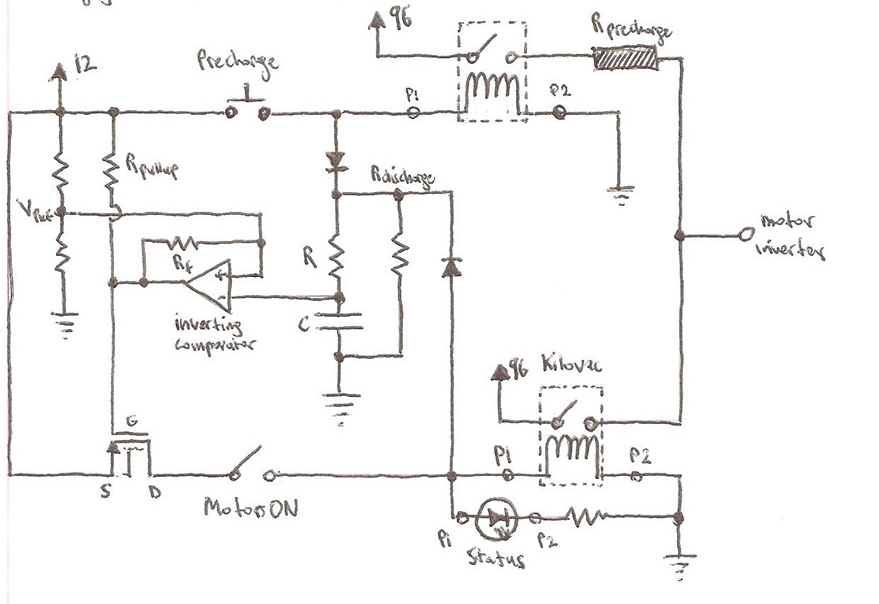 96
Rprecharge
12
Precharge
P1
P2
Rpullup
Rdischarge
VRef
motor
inverter
Rf
R
+
-
C
inverting
comparator
96
Kilovac
G
P1
P2
S
D
Motors ON
P1
P2
Status